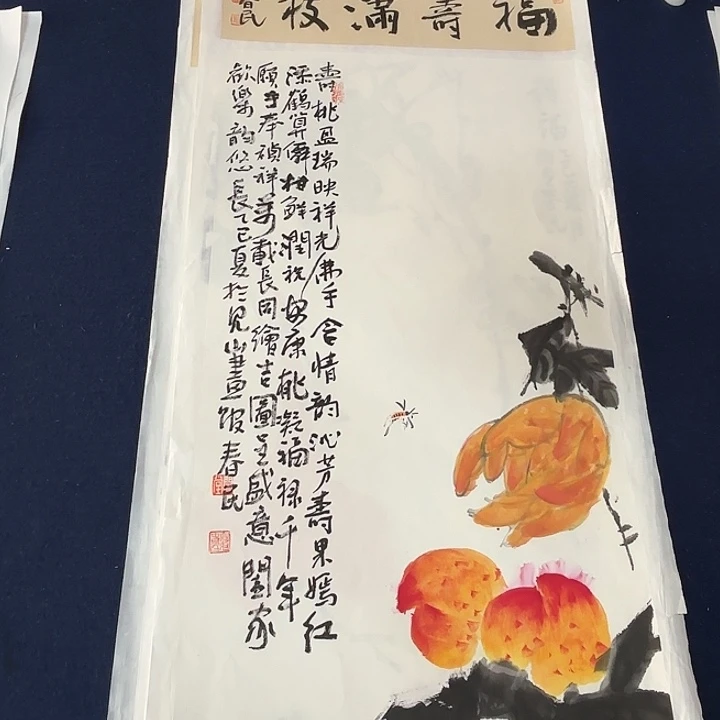 福壽滿枝
春民
壽桃盈瑞映祥光佛手含情韵沁芳壽果嫣紅
深鶴算佛柑鮮潤祝安康桃凝福祿千年
願手奉禎祥萬載長同繪吉圖呈盛意闔家
歡樂韵悠長乙巳夏於見山畫館春民